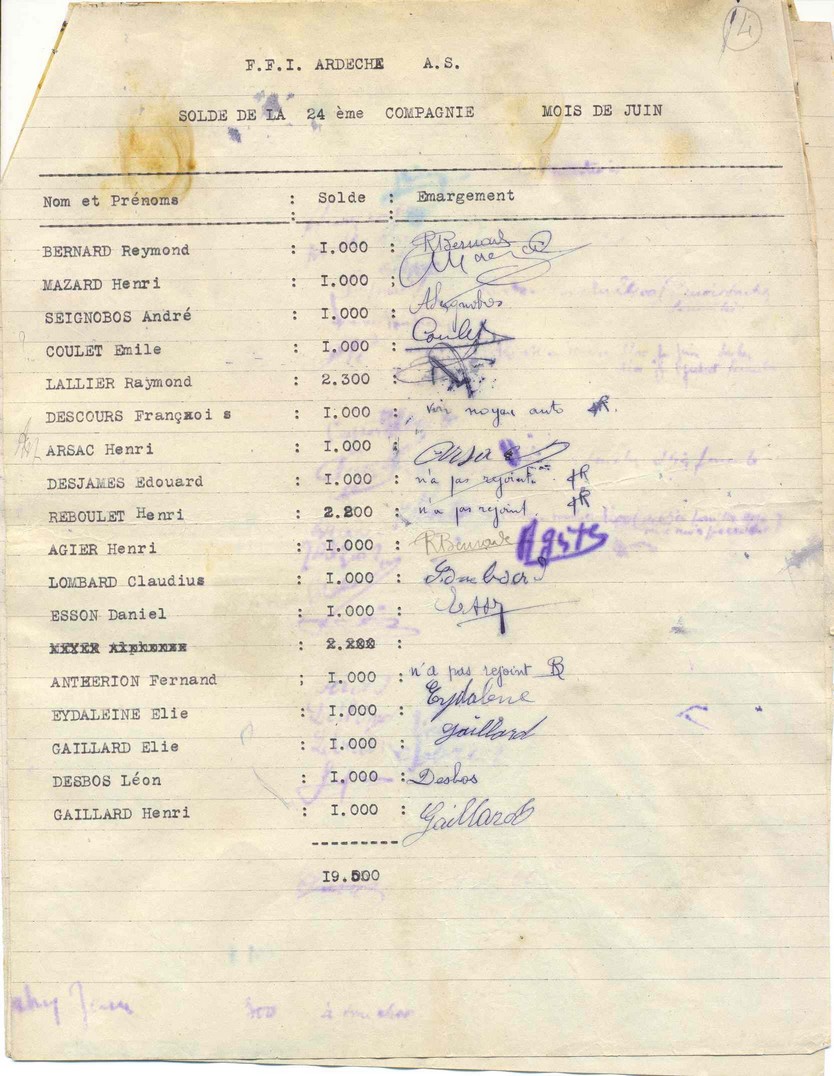 4
F.F.I. ARDECHE A.S.
SOLDE DE LA 24 ème COMPAGNIE MOIS DE JUIN
Nom et Prénoms : Solde : Emargement
: :
BERNARD Reymond : I.000 : RBernard
MAZARD Henri : I.000 :
SEIGNOBOS André : I.000 : ASeignobos
COULET Emile : I.000 : Coulet
LALLIER Raymond : 2.300 :
DESCOURS François : I.000 : voir noyer auto
ARSAC Henri : I.000 : Arsac
DESJAMES Edouard : I.000 : n'a pas rejoint
REBOULET Henri : 2.200 : n'a pas rejoint
AGIER Henri : I.000 : RBernard
LOMBARD Claudius : I.000 :
ESSON Daniel : I.000 : Esson
: 2.200 :
ANTHERION Fernand ; I.000 : n'a pas rejoint
EYDALEINE Elie : I.000 : Eydalene
GAILLARD Elie : I.000 : gaillard
DESBOS Léon : I.000 : Desbos
GAILLARD Henri : I.000 : Gaillard
---------
I9.500